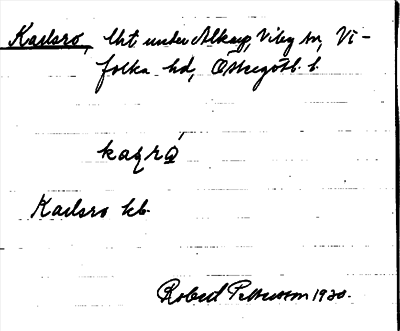 Karlsro, lht under Alkarp, Viby sn, Vi-
folka hd, Östergötl. l.
kaɽró
Karlsro kb.
Robert Pettersson 1930.